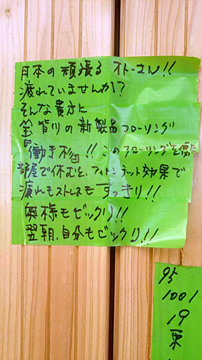 日本の頑張るオトーさん!!
疲れていませんか?
そんな貴方に
皆の新製品フローリング
「働き杉」!! このフローリングを
部屋で休むと、フィトンチット効果で
疲れもストレスもすっきり!!
奥様もビックリ!!
翌朝、自分もビックリ!!
95
1001
19